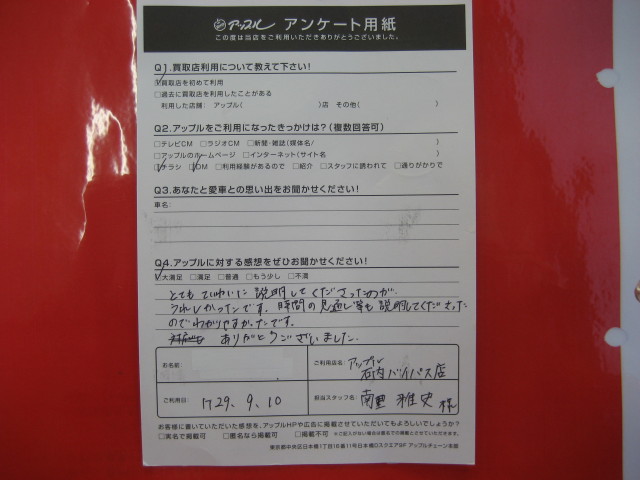 アップル アンケート用紙
この度は当店をご利用いただきありがとうございました。
Q1.買取店利用について教えて下さい!
買取店を初めて利用
□過去に買取店を利用したことがある
利用した店舗: アップル( )店 その他( )
Q2.アップルをご利用になったきっかけは?(複数回答可)
□テレビCM □ラジオCM □新聞・雑誌(媒体名/ )
□アップルのホームページ □インターネット(サイト名 )
□チラシ □DM □利用経験があるので □紹介 □スタッフに誘われて □通りがかりで
Q3.あなたと愛車との思い出をお聞かせください!
車名:
Q4.アップルに対する感想をぜひお聞かせください!
□大満足 □満足 □普通 □もう少し □不満
とてもていねいに説明してくださったのが
うれしかったです。時間の見通し等も説明してくださった
のでわかりやすかったです。
ありがとうございました。
お名前
ご利用店名: アップル
石内バイパス店
ご利用日 H29. 9. 10
担当スタッフ名 南里 雅史 様
お客様に書いていただいた感想を、アップルHPや広告に掲載させていただいてもよろしいでしょうか?
□実名で掲載可 □匿名なら掲載可 □掲載不可 ※ご記入がない場合は匿名での掲載とさせていただきます。
東京都中央区日本橋1丁目16番11号日本橋Dスクエア9F アップルチェーン本部